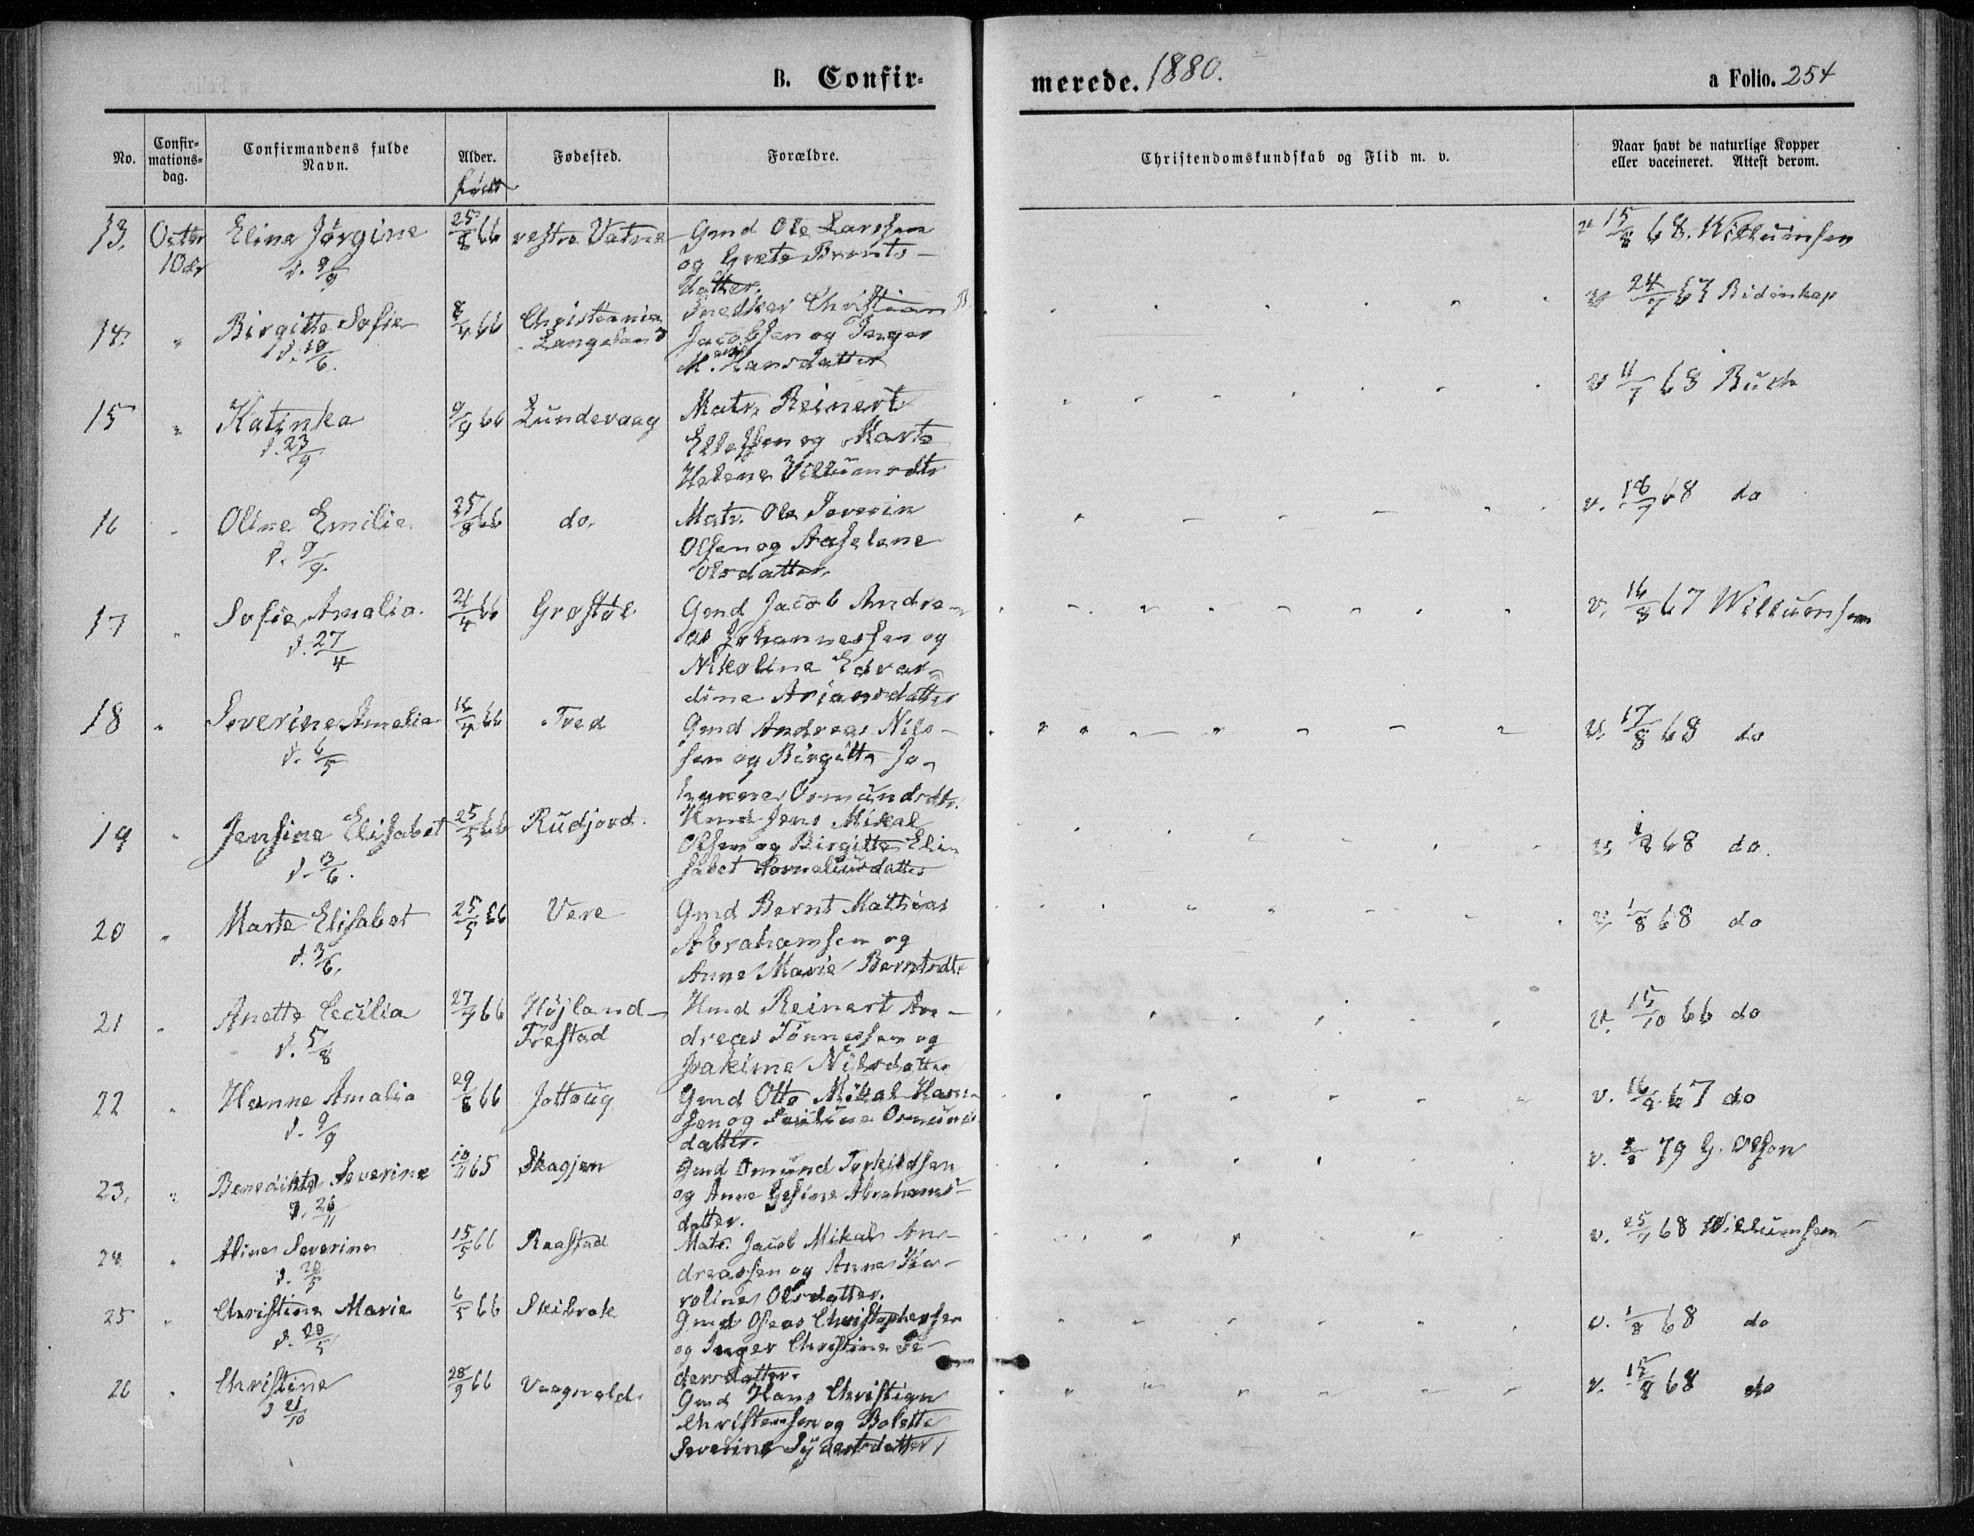 B. Confir-
merede. 1880.
a Folio. 254
No.
Confir-
mations-
dag.
Confirmandens fulde
Navn.
Alder.
født
Fødested.
Forældre.
Christendomskundskab og Flid m. v.
Naar havt de naturlige Kopper
eller vaccineret. Attest derom.
13. Octbr Elina Jørgine 25/8 66 vestre Vatne Gmd Ole Larssen
10de d. 9/9 og Grete Bernts-
datter.
v 15/8 68. Willumsen
14. " Birgitte Sofie 8/4 66 Christiania Snedker Christian
d. 10/6. Langesand Jacobsen og Inger
M. Hansdatter
v 24/7 67 Bidenkap
15 " Katinka 9/9 66 Lundevaag Matr. Reinert
d. 23/9 Ellefsen og Marte
Helene Villumsdtr
v 11/7 68 Buch
16 " Oline Emilie 25/8 66 do. Matr. Ole Severin
d. 9/9. Olsen og Aaselene
Olsdatter.
v. 18/7 68 do
17 " Sofie Amalia. 21/4 66 Grostøl Gmd Jacob Andre-
d. 27/4 as Johannessen og
Nikoline Edvar-
dine Ariansdatter
v. 16/8 67 Willumsen
18 " Severine Amalia 16/4 66 Tved Gmd Andreas Nils-
d. 6/5 sen og Birgitte Jo-
Osmundsdtr.
v. 17/8 68 do
19 " Jensine Elisabet 25/5 66 Rudjord. Hmd Jens Mikal
d. 3/6. Olsen og Birgitte Eli-
sabet Korneliusdatter
v 1/8 68 do.
20 " Marte Elisabet 25/5 66 Vere Gmd Bernt Mathias
d. 3/6. Abrahamsen og
Anne Marie Berntsdtr
v. 1/8 68 do
21 " Anette Cecilia 27/7 66 Højland- Hmd Reinert An-
d. 5/8 Frestad dreas Tönnessen og
Joakime Nilsdatter
v. 15/10 66 do
22 " Hanne Amalia 29/8 66 Jottoug Gmd Otto Mikal Han-
d. 9/9 sen og Osmunds
datter.
v. 16/8 67 do
23. " Benedikte Severine 10/11 65 Skagjen Gmd Omund Torkildsen
d. 26/11 og Anne Gesine Abrahams-
datter.
v. 2/8 79 G. Olsen
24 " Severine 15/5 66 Raastad Matr. Jacob Mikal An-
d. 20/5 dreassen og Anne Ka-
roline Olsdatter.
v. 25/7 68 Willumsen
25 " Christine Marie 6/5 66 Skibrok Gmd Christophersen
d. 20/5 og Inger Christine Pe-
dersdatter.
v. 1/8 68 do
26 " Christine 28/9 66 Vaagvold. Gmd Hans Christian
d 21/10 Christensen og Bolette
Severine Syvertsdatter
v. 15/8 68 do